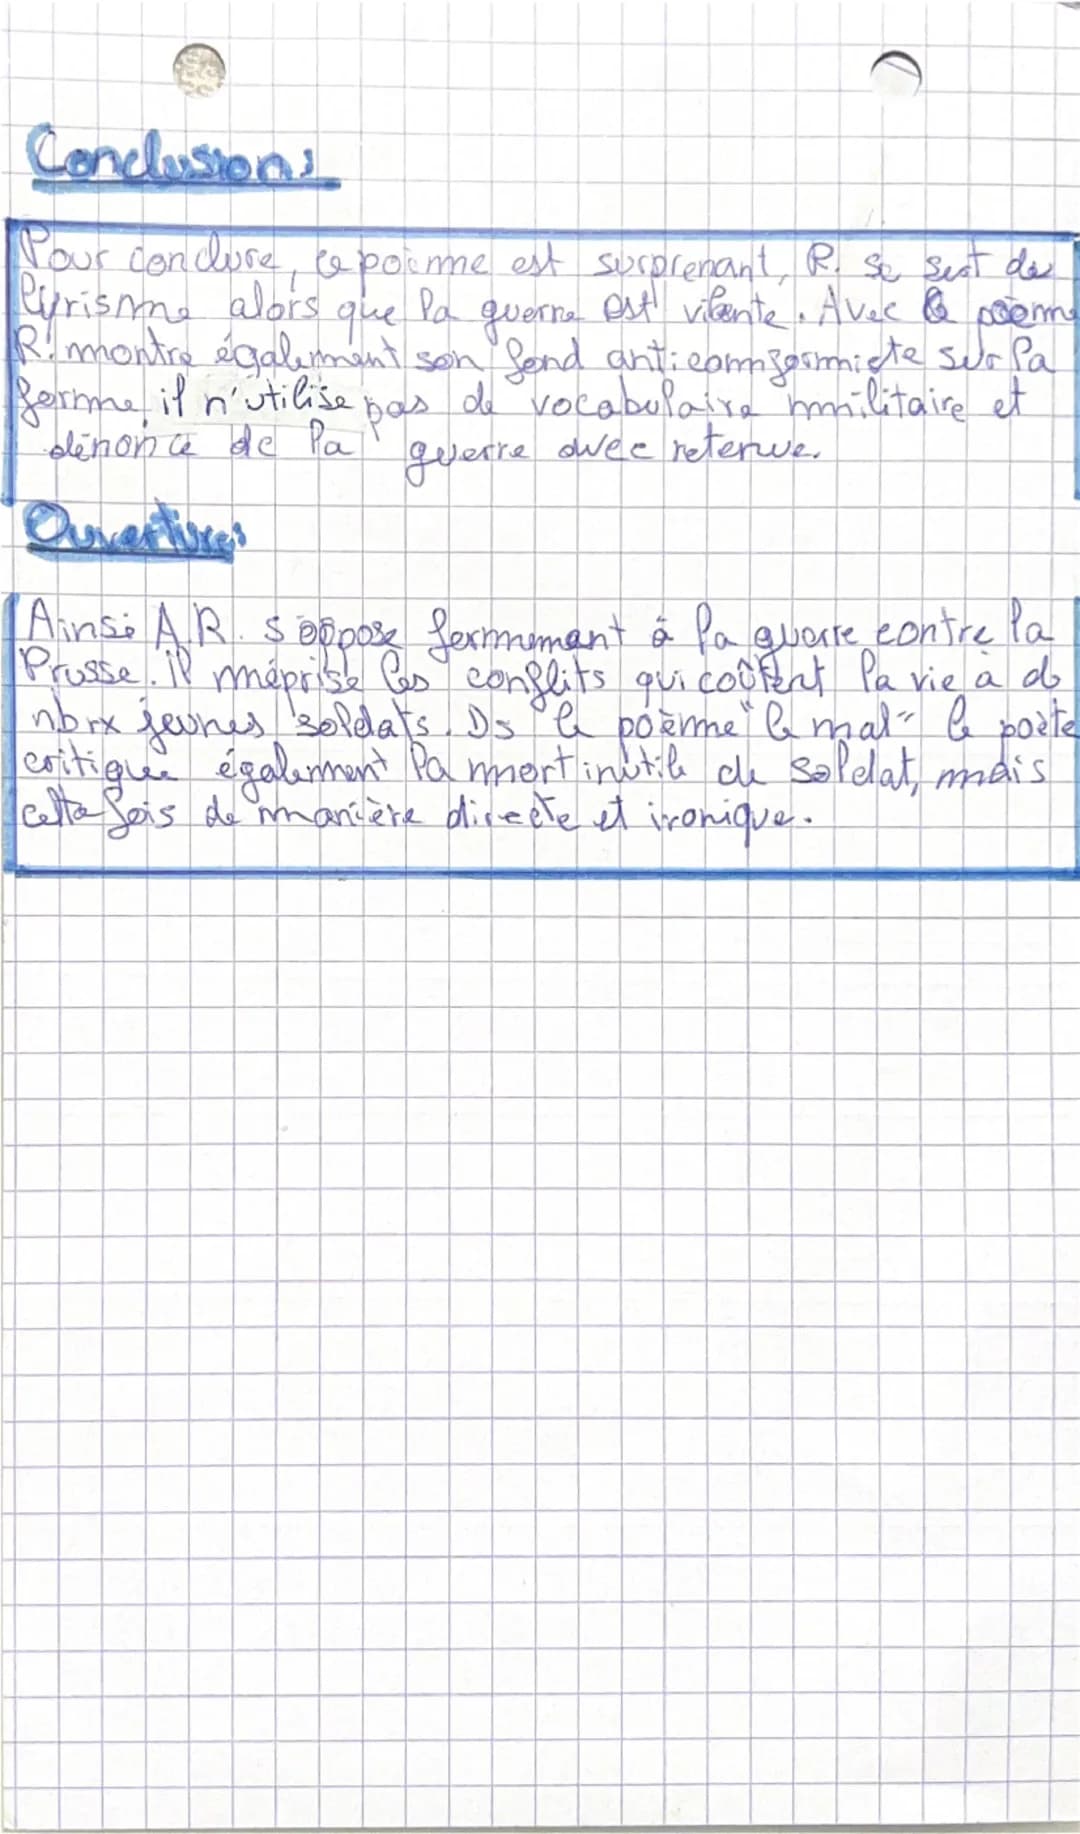 Conclusion:
Pour conclure, ce poème est surprenant, R. se sert des
lyrisme alors que la guerre est vilente. Avec le poème
R. montre également son fond anticomformiste sur la
forme, il n'utilise pas de vocabulaire militaire et
dénonce de la guerre avec retenue.
Ouverture:
Ainsi A.R. s'oppose fermement à la guerre contre la
Prusse. il méprise les conflits qui coûtent la vie à de
nbrx jeunes soldats. Ds le poème "le mal" le poète
critique également la mort inutile de soldat, mais
cette fois de manière directe et ironique.